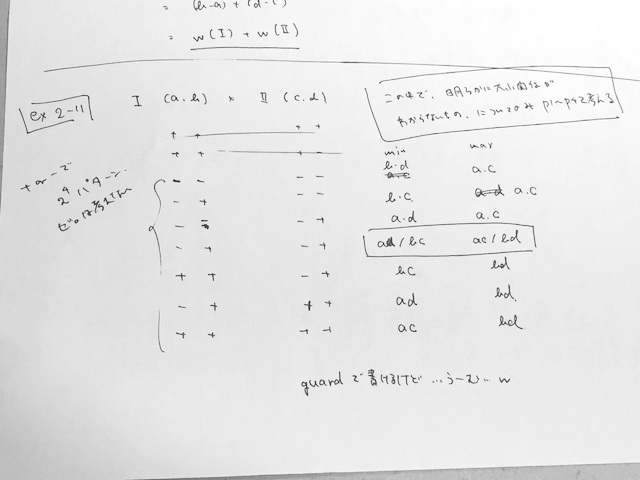 = (b-a) + (d-c)
= w(I) + w(II)
ex 2-11
I (a.b) × II (c.d)
この中で、明らかに大小関係が
わからないもの、についてのみ p1〜p4で考える
+ or - で
2^4 パターン
ゼロは考えてない
+ + + +
+ +
min max
- - - - b.d a.c a.c
- + - - b.c a.d a.c
- - - + a.d a.c
- + - + ad/bc ac/bd
+ + - + bc bd
- + + + ad bd.
+ + + + ac bd
guard で書けるけど…うーむ…w